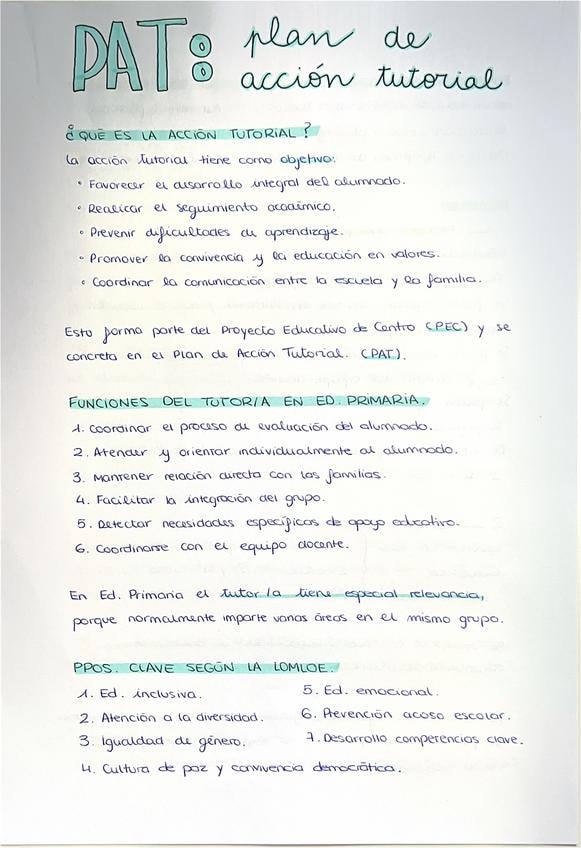 PAT: plan de
acción tutorial
¿QUÉ ES LA ACCIÓN TUTORIAL?
La acción tutorial tiene como objetivo:
• Favorecer el desarrollo integral del alumnado.
• Realizar el seguimiento académico.
• Prevenir dificultades de aprendizaje.
• Promover la convivencia y la educación en valores.
• Coordinar la comunicación entre la escuela y la familia.
Esto forma parte del Proyecto Educativo de Centro (PEC) y se
concreta en el Plan de Acción Tutorial. (PAT).
FUNCIONES DEL TUTOR/A EN ED. PRIMARIA.
1. Coordinar el proceso de evaluación del alumnado.
2. Atender y orientar individualmente al alumnado.
3. Mantener relación directa con las familias.
4. Facilitar la integración del grupo.
5. Detectar necesidades específicas de apoyo educativo.
6. Coordinarse con el equipo docente.
En Ed. Primaria el tutor/a tiene especial relevancia,
porque normalmente imparte varias áreas en el mismo grupo.
PPOS. CLAVE SEGÚN LA LOMLOE.
1. Ed. inclusiva.
2. Atención a la diversidad.
3. Igualdad de género.
4. Cultura de paz y convivencia democrática.
5. Ed. emocional.
6. Prevención acoso escolar.
7. Desarrollo competencias clave.